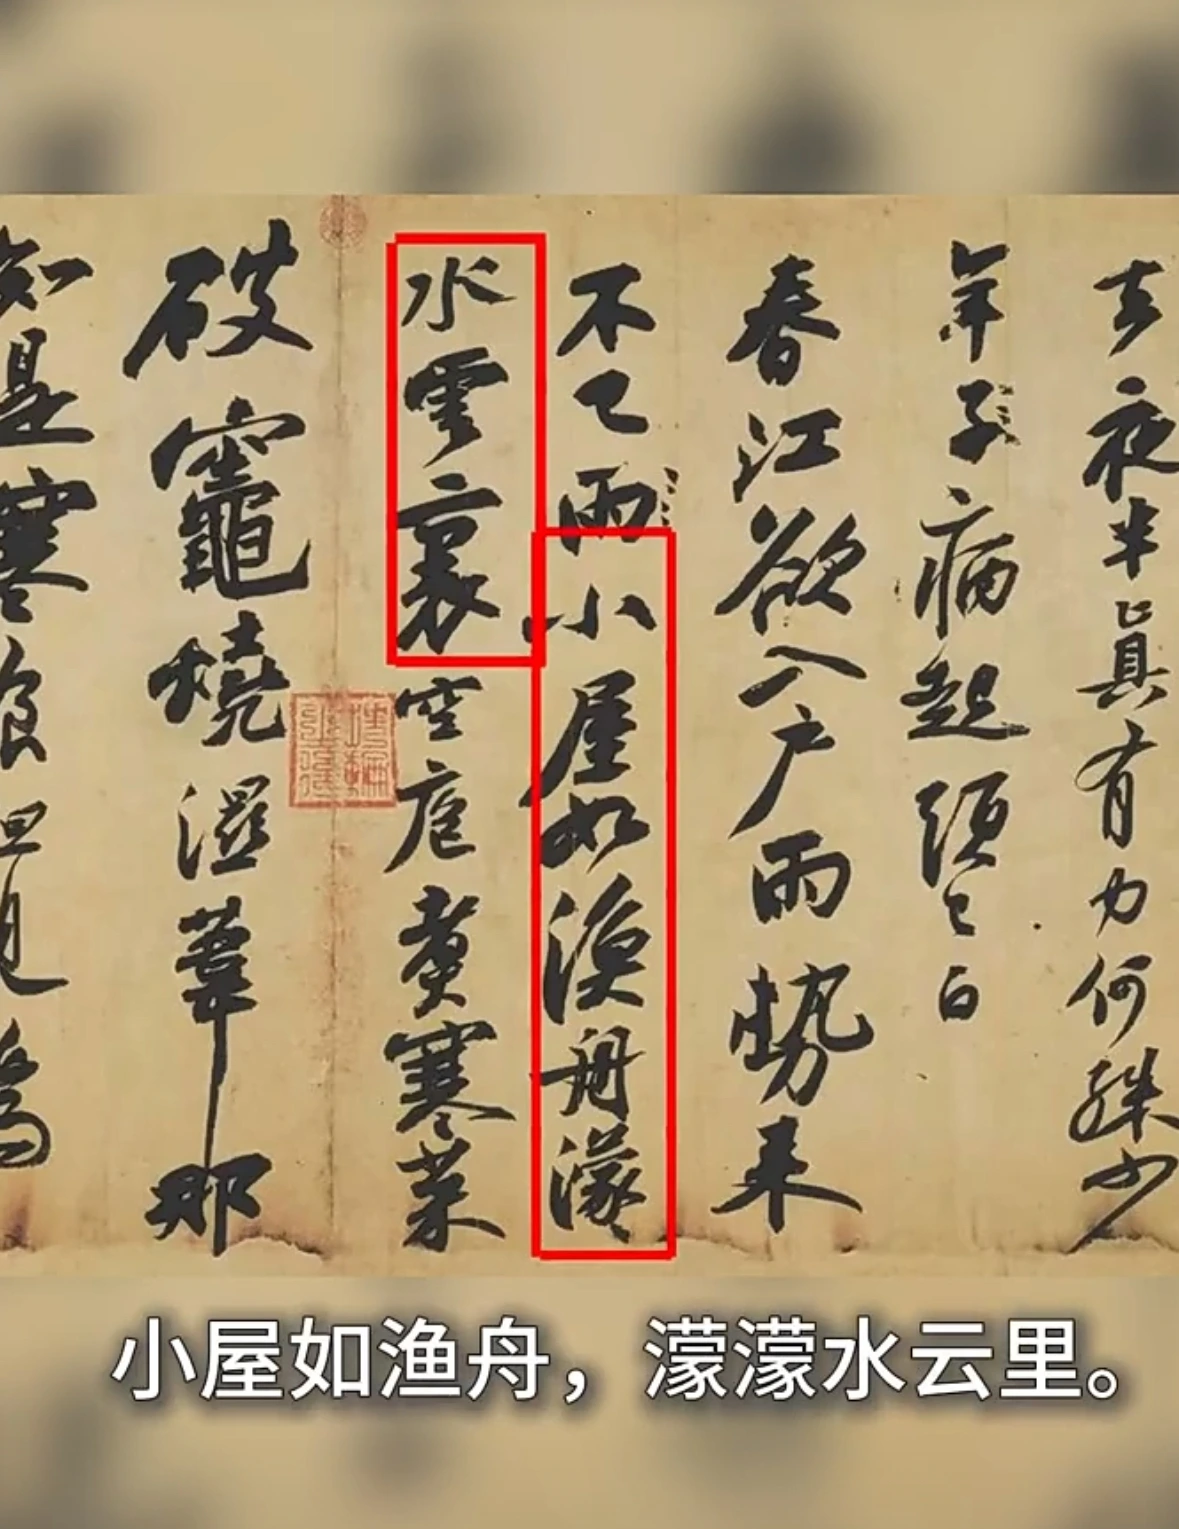 夜半真有力何殊少
年子病起頭已白
春江欲入户雨勢来
不已雨小屋如漁舟濛
水雲裏空庖煮寒菜
破竈燒濕葦那
知是寒食但見烏
小屋如渔舟，濛濛水云里。